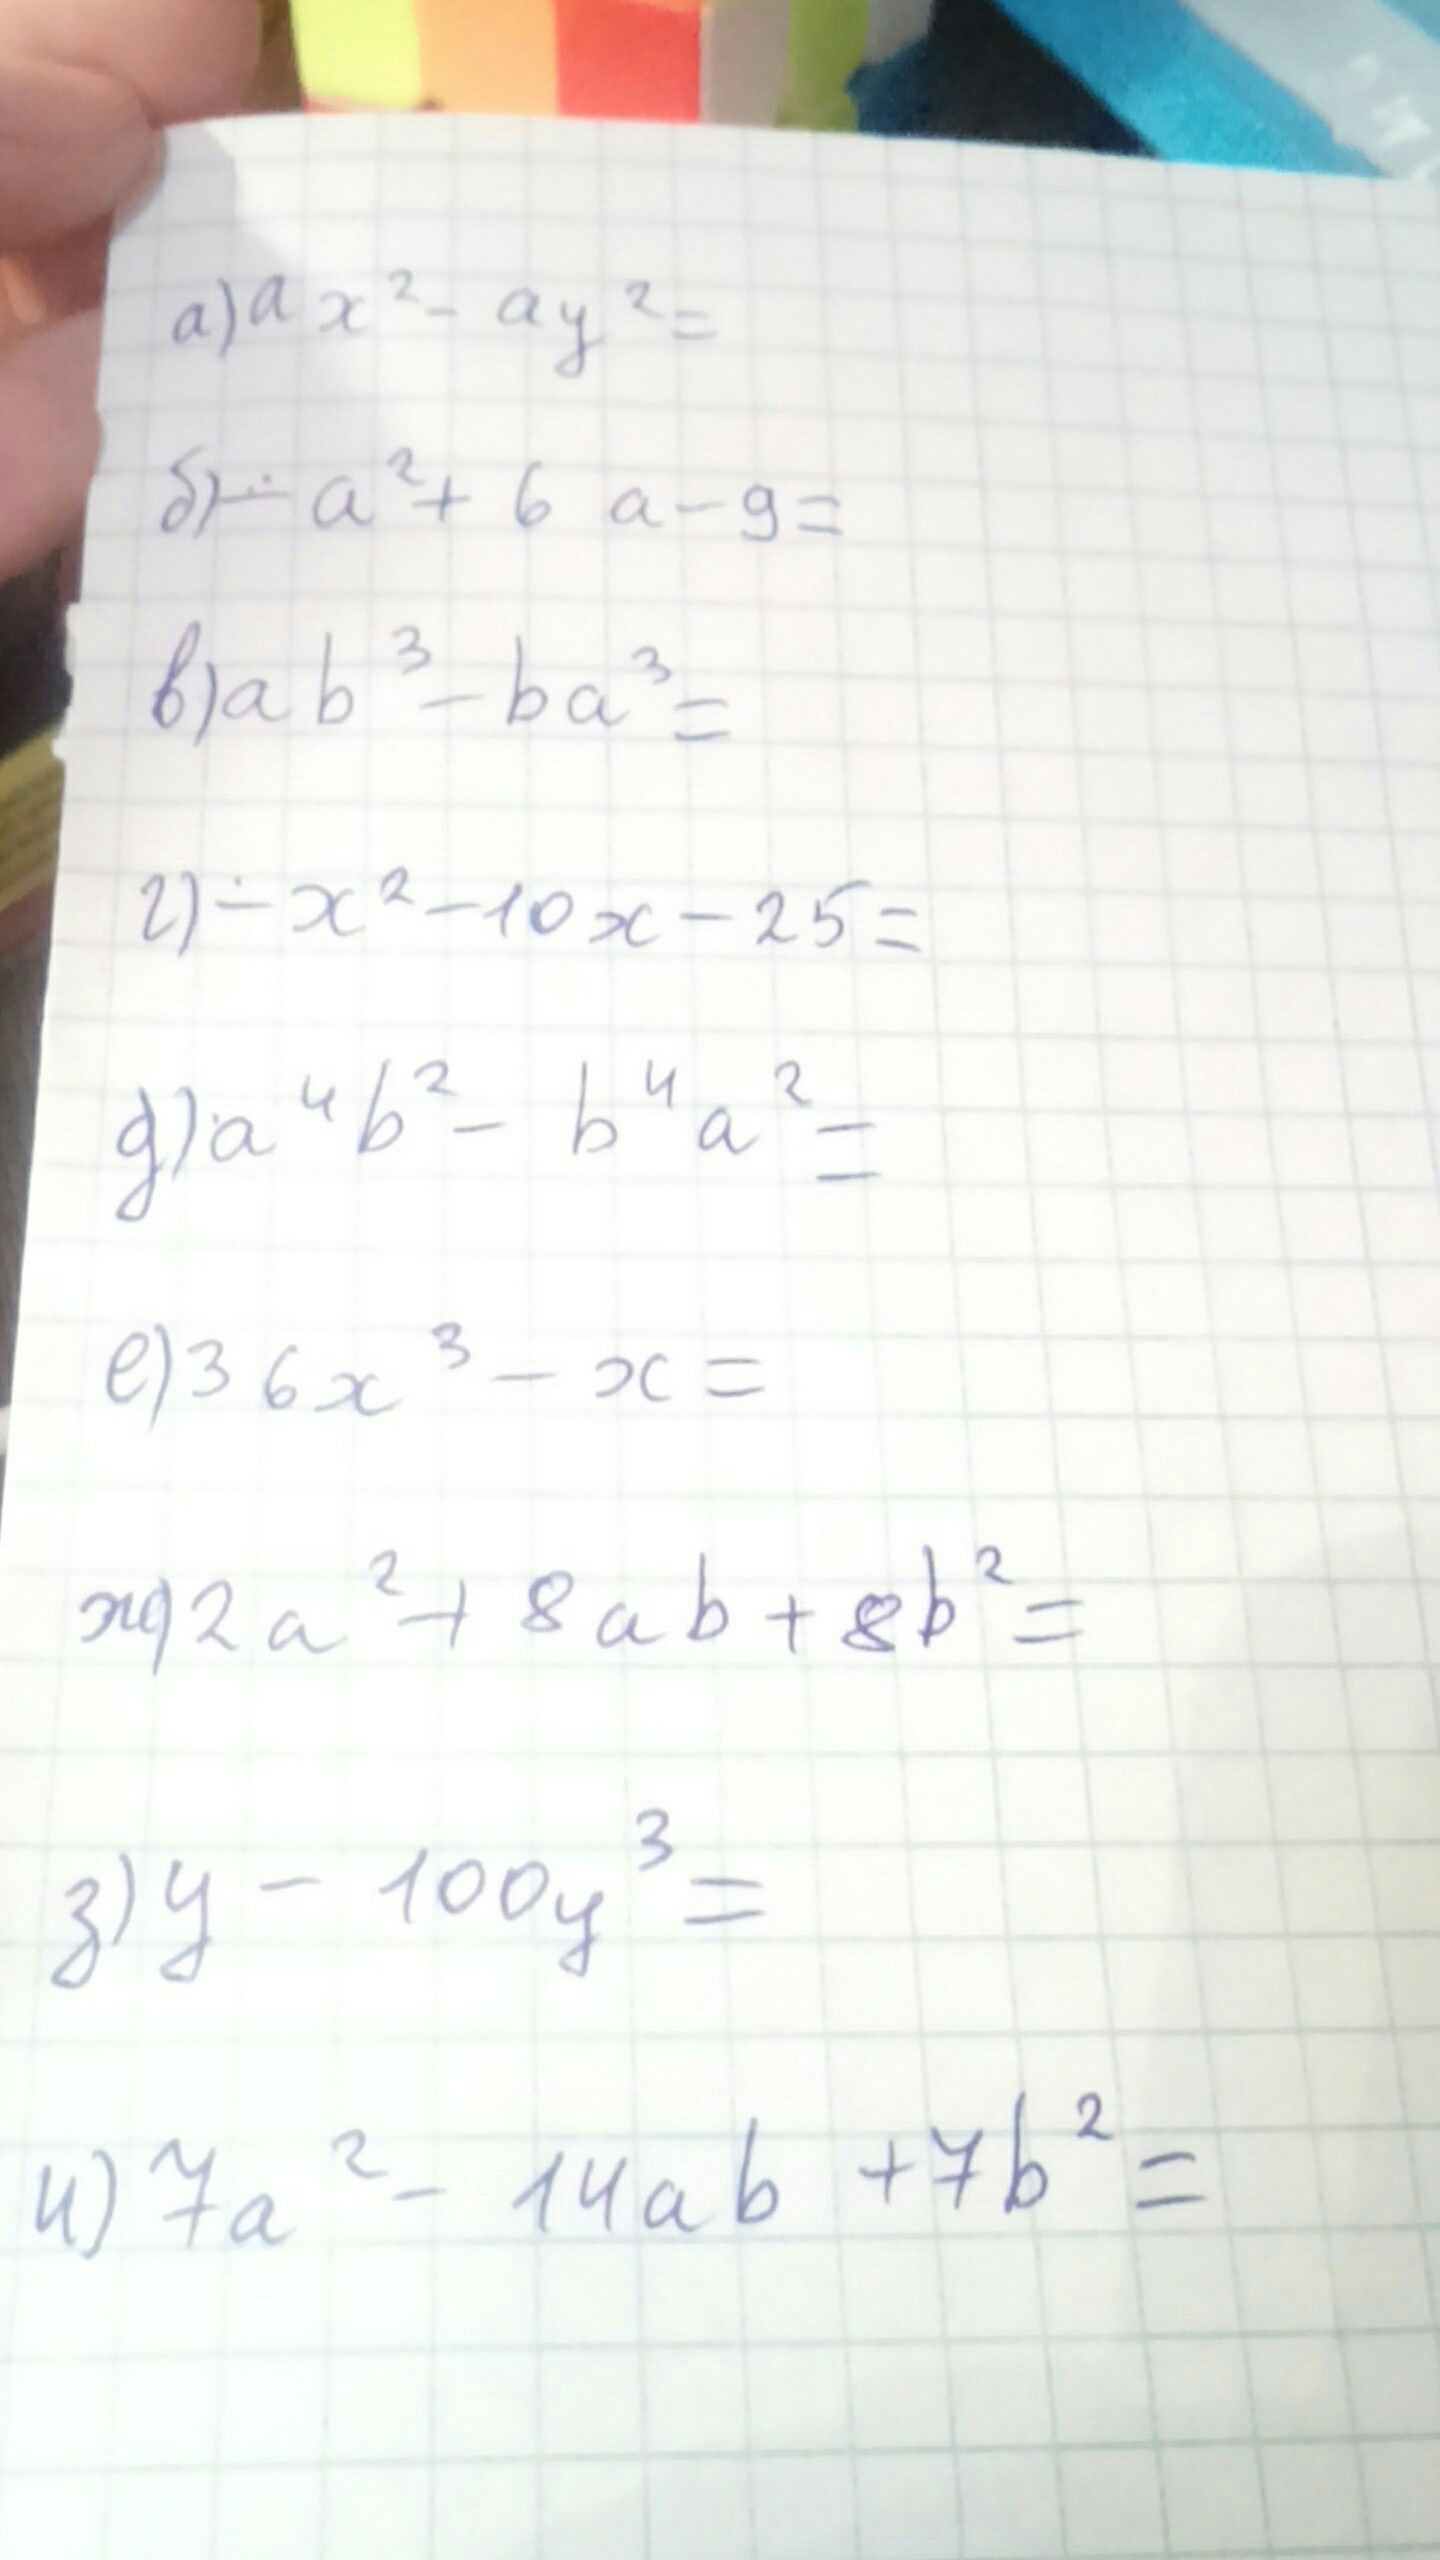 а) ax² - ay² =
б) - a² + 6a - 9 =
в) ab³ - ba³ =
г) - x² - 10x - 25 =
д) a⁴b² - b⁴a² =
е) 36x³ - x =
ж) 2a² + 8ab + 8b² =
з) y - 100y³ =
и) 7a² - 14ab + 7b² =